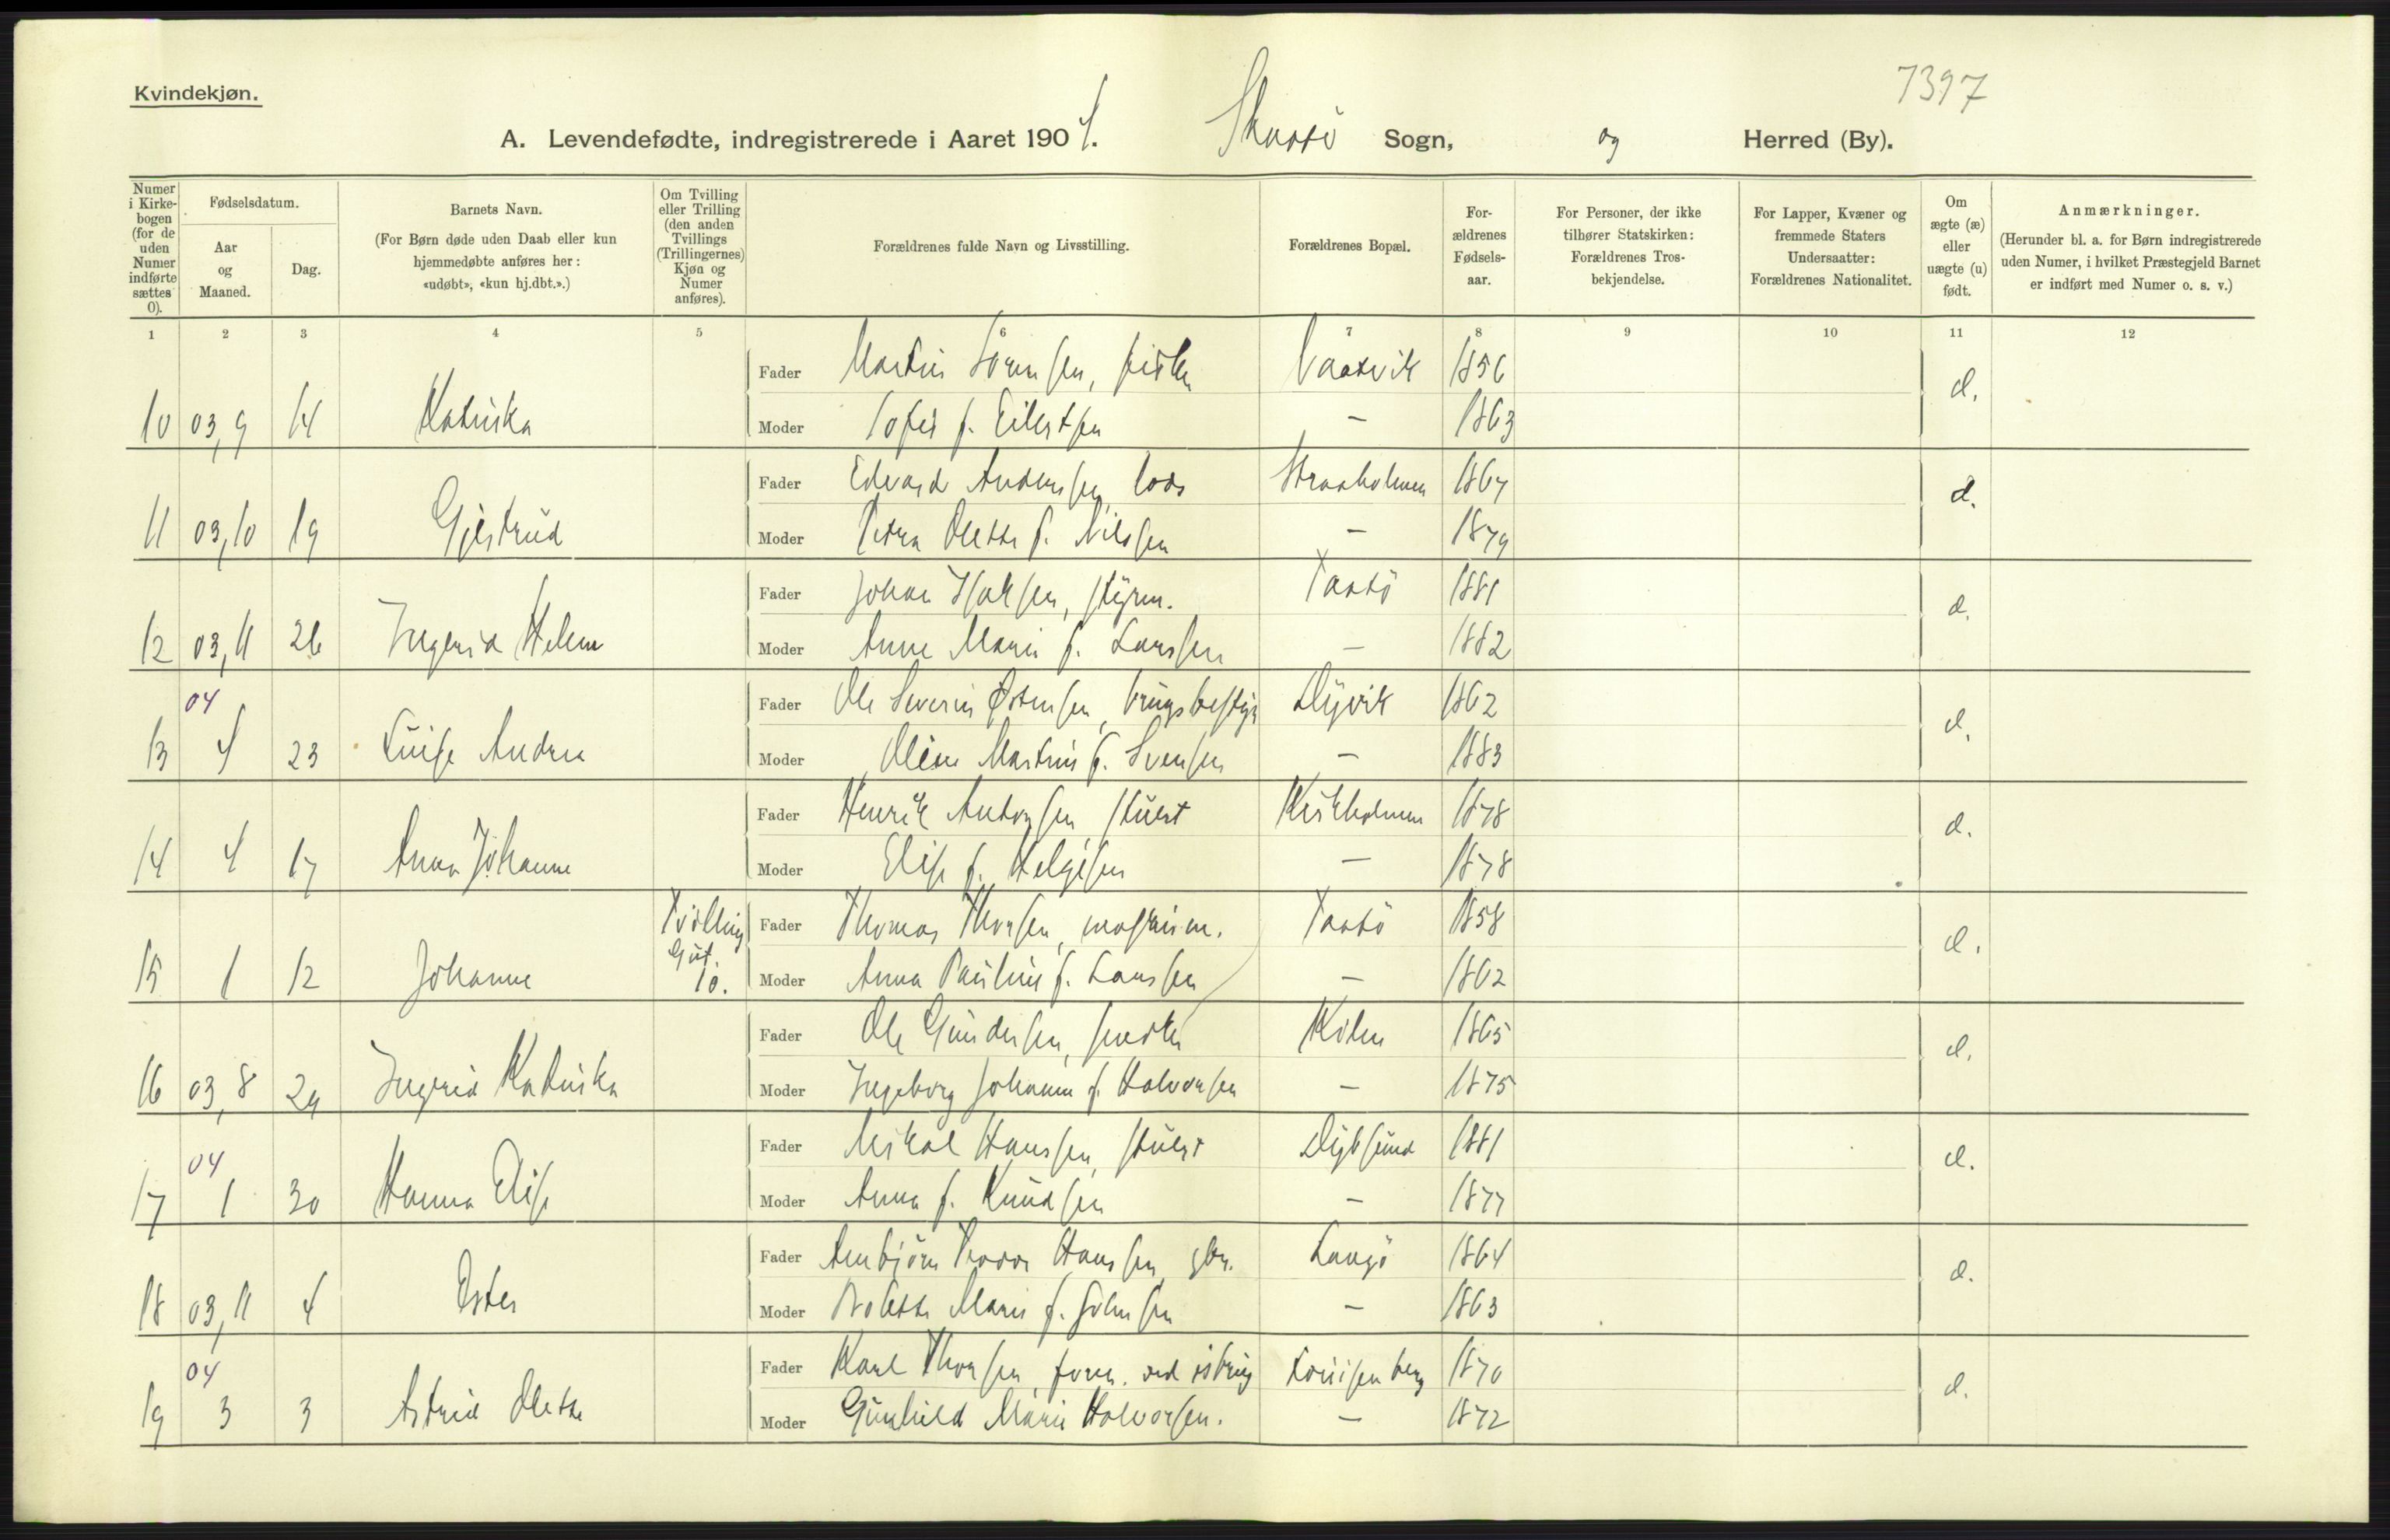 Kvindekjøn.
7397
A. Levendefødte, indregistrerede i Aaret 1904. Skaatö Sogn, og Herred (By).
Numer i Kirkebogen (for de uden Numer indførte sættes 0).
Fødselsdatum.
Aar og Maaned.
Dag.
Barnets Navn.
(For Børn døde uden Daab eller kun hjemmedøbte anføres her: «udøbt», «kun hj.dbt.».)
Om Tvilling eller Trilling (den anden Tvillings (Trillingernes) Kjøn og Numer anføres).
Forældrenes fulde Navn og Livsstilling.
Forældrenes Bopæl.
Forældrenes Fødselsaar.
For Personer, der ikke tilhører Statskirken: Forældrenes Trosbekjendelse.
For Lapper, Kvæner og fremmede Staters Undersaatter: Forældrenes Nationalitet.
Om ægte (æ) eller uægte (u) født.
Anmærkninger.
(Herunder bl. a. for Børn indregistrerede uden Numer, i hvilket Præstegjeld Barnet er indført med Numer o. s. v.)
1 2 3 4 5 6 7 8 9 10 11 12
Fader Martin Sörensen, fisker 1856
10 03,9 14 Katinka Moder Sofie f. Eilertsen — 1863
Fader Edvard Andersen, lods Straaholmen 1867
11 03,10 19 Gjertrud Moder Petra Olette f. Nilssen — 1879
Fader Johan Isaksen, styrm. Taatö 1881
12 03,11 26 Ingerid Helene Moder Anne Marie f. Larssen — 1882
04 Fader Ole Severin Østensen, brugsbestyr Dypvik 1862
13 4 23 Luise Andrea Moder Oline Martine f. Svensen — 1883
Fader Henrik Antonsen, stuert Kirkholmen 1878
14 4 17 Anna Johanne Moder Elise f. Helgesen — 1878
Tvilling Fader Thomas Thorsen, maskinm. Taatö 1858
15 1 12 Johanne Gut. 10. Moder Anna Pauline f. Larssen — 1862
Fader Ole Gundersen, snedker Kilen 1865
16 03,8 29 Ingrid Katinka Moder Ingeborg Johanne f. Halvorsen — 1875
04 Fader Mikal Hanssen, stuert Dybsund 1881
17 1 30 Hanna Elise Moder Anna f. Knudsen — 1877
Fader Anbjörn Hanssen, gbr. Langö 1864
18 03,11 4 Ester Moder Bolette Marie f. Johnsen — 1863
04 Fader Karl Thorsen, form. ved isbrug Louisenberg 1870
19 3 3 Astrid Olette Moder Gunhild Marie Halvorsen. — 1872